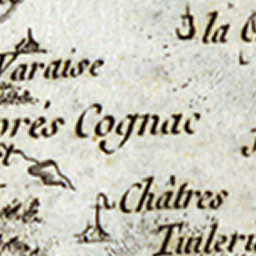 la
Varaise
prés Cognac
Châtres
Tuilerie